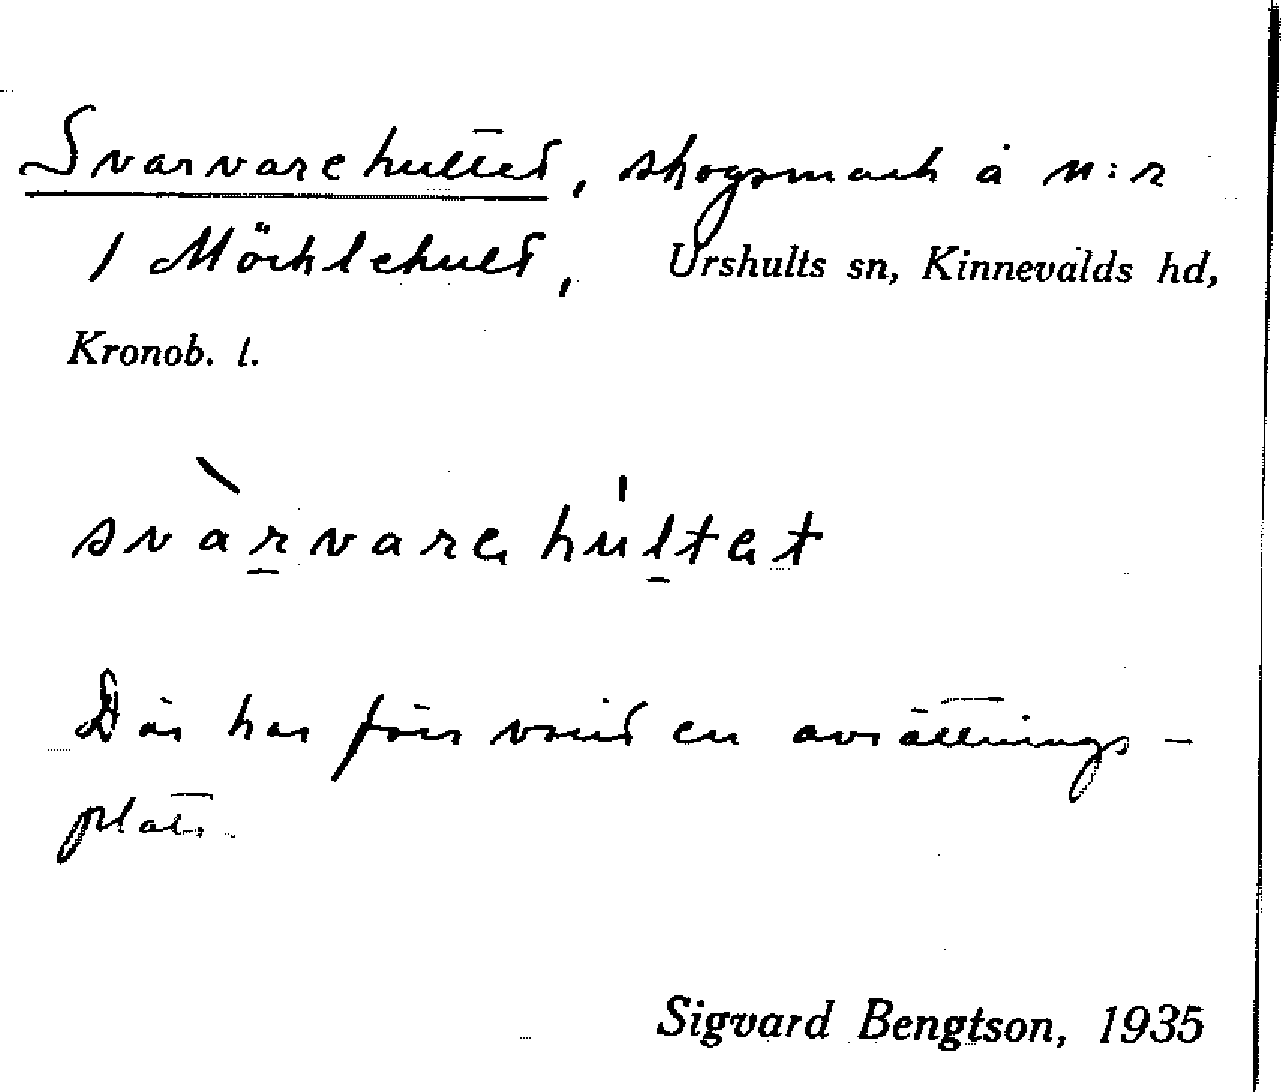 Svarvarehultet, skogsmark å n:r
1 Mörklehult, Urshults sn, Kinnevalds hd,
Kronob. l.
svàrvarehu̍ltet
Där har förr varit en avsättnings-
plats.
Sigvard Bengtson, 1935